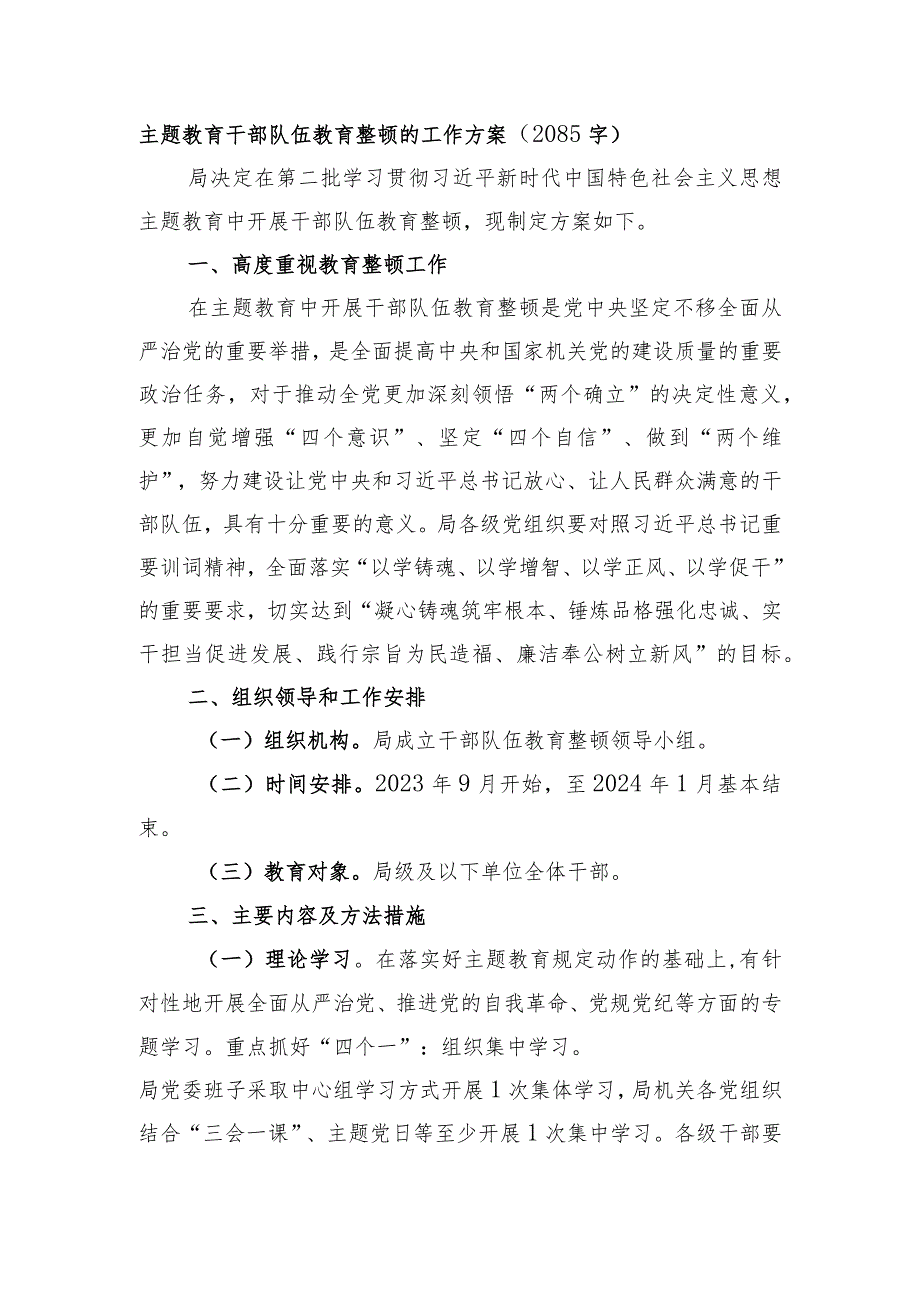 主题教育干部队伍教育整顿的工作方案（2085 字）
局决定在第二批学习贯彻习近平新时代中国特色社会主义思想
主题教育中开展干部队伍教育整顿，现制定方案如下。
一、高度重视教育整顿工作
在主题教育中开展干部队伍教育整顿是党中央坚定不移全面从
严治党的重要举措，是全面提高中央和国家机关党的建设质量的重要
政治任务，对于推动全党更加深刻领悟“两个确立”的决定性意义，
更加自觉增强“四个意识”、坚定“四个自信”、做到“两个维
护”，努力建设让党中央和习近平总书记放心、让人民群众满意的干
部队伍，具有十分重要的意义。局各级党组织要对照习近平总书记重
要训词精神，全面落实“以学铸魂、以学增智、以学正风、以学促干”
的重要要求，切实达到“凝心铸魂筑牢根本、锤炼品格强化忠诚、实
干担当促进发展、践行宗旨为民造福、廉洁奉公树立新风”的目标。
二、组织领导和工作安排
（一）组织机构。局成立干部队伍教育整顿领导小组。
（二）时间安排。2023 年 9 月开始，至 2024 年 1 月基本结
束。
（三）教育对象。局级及以下单位全体干部。
三、主要内容及方法措施
（一）理论学习。在落实好主题教育规定动作的基础上,有针
对性地开展全面从严治党、推进党的自我革命、党规党纪等方面的专
题学习。重点抓好“四个一”：组织集中学习。
局党委班子采取中心组学习方式开展 1 次集体学习,局机关各党组织
结合“三会一课”、主题党日等至少开展 1 次集中学习。各级干部要